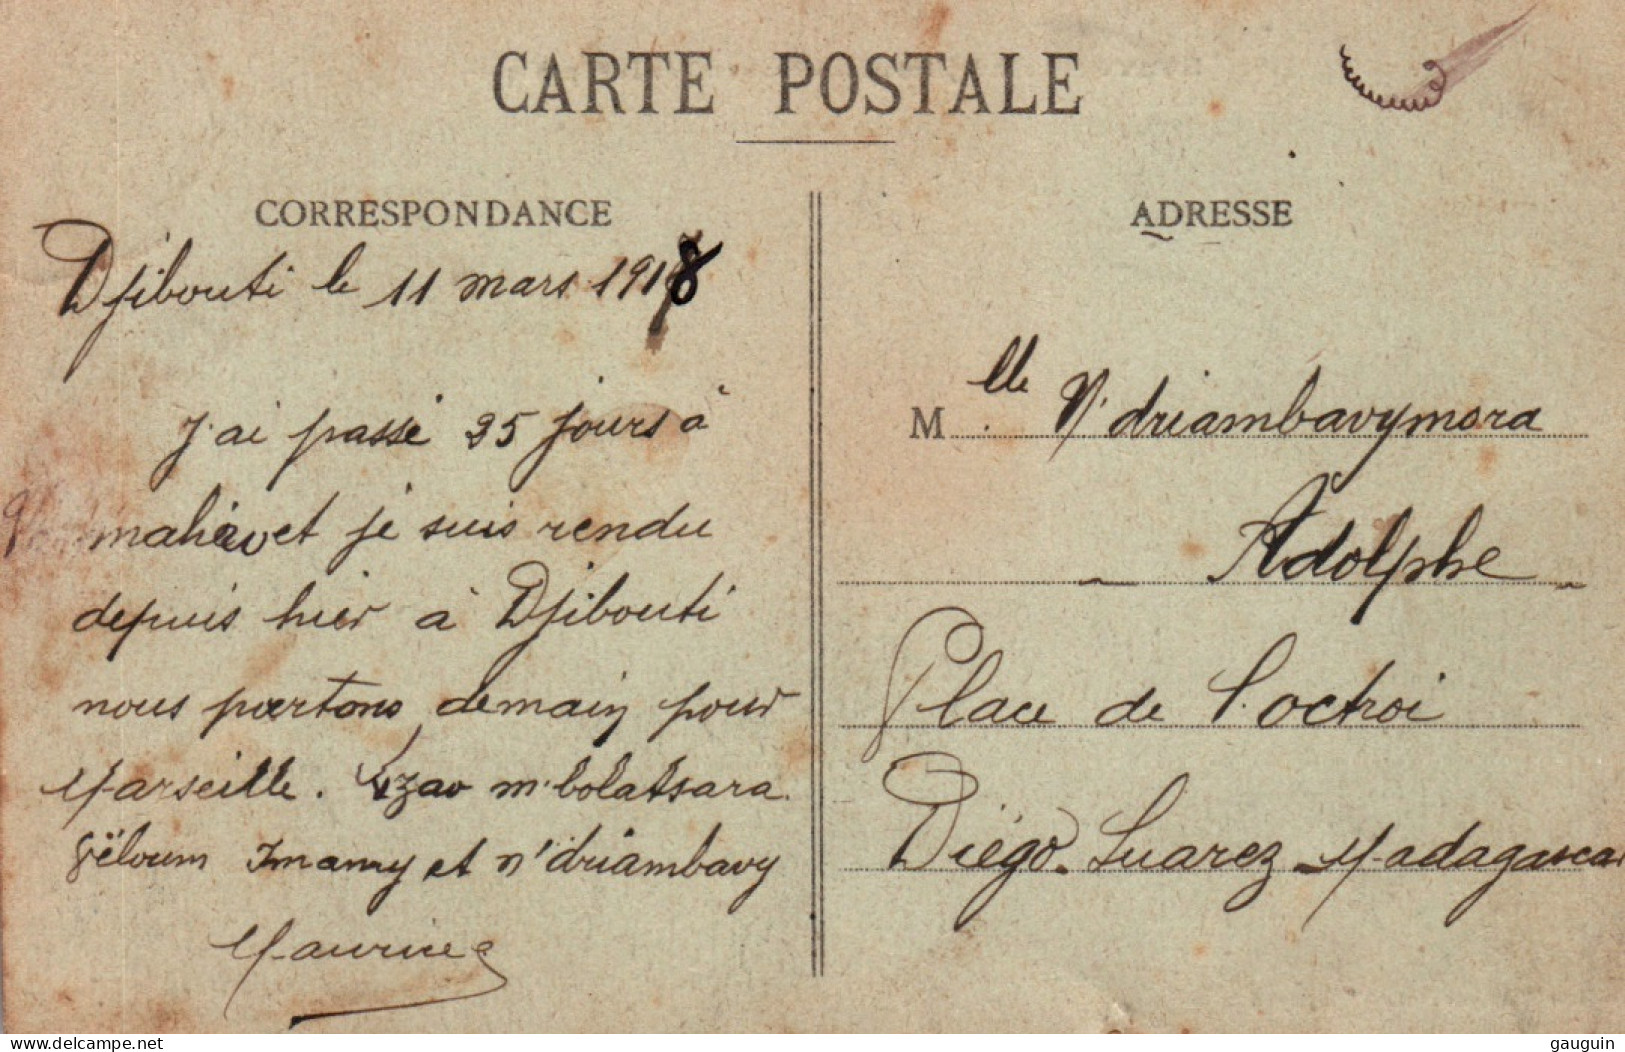 CARTE POSTALE
CORRESPONDANCE
Djibouti le 11 mars 1918
J'ai passé 35 jours à
et je suis rendu
depuis hier à Djibouti
nous partons demain pour
Marseille. izao m'bolatsara
Véloum Imamy et n'driambavy
Maurice
ADRESSE
Mlle N'driambavymora
Adolphe
Place de l'octroi
Diégo-Suarez-Madagascar
delcampe.net
gauguin